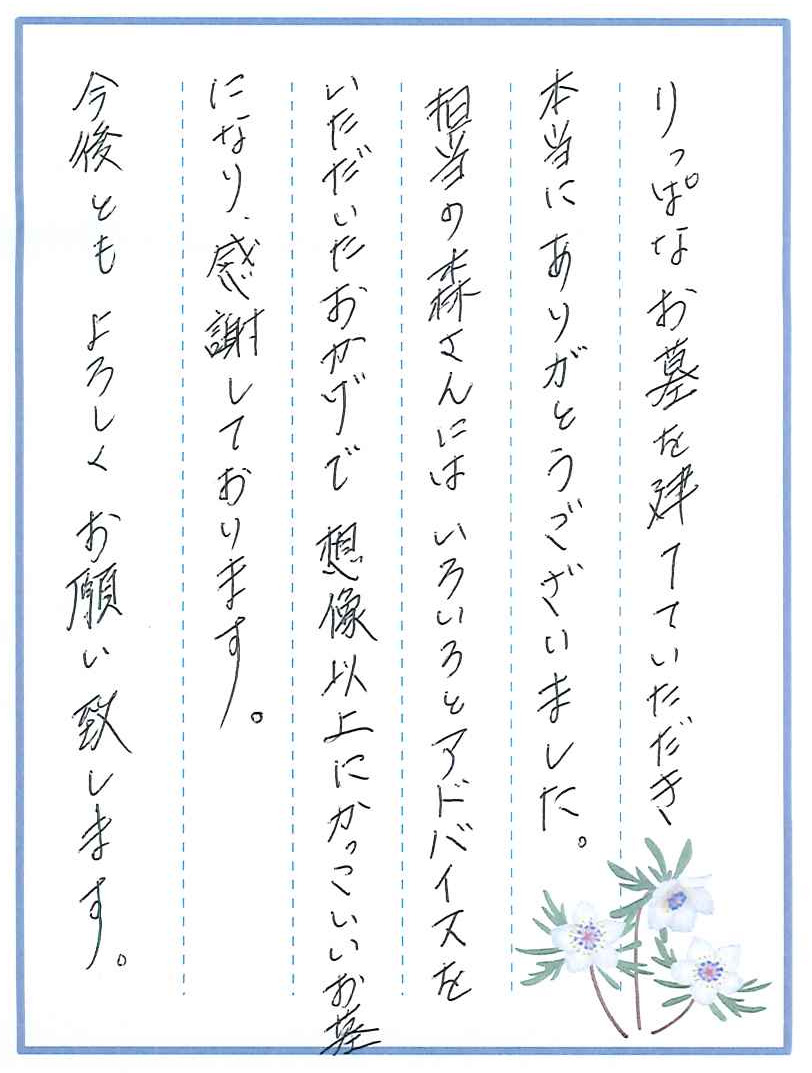 りっぱなお墓を建てていただき
本当にありがとうございました。
担当の森さんにはいろいろとアドバイスを
いただいたおかげで想像以上にかっこいいお墓
になり、感謝しております。
今後ともよろしくお願い致します。